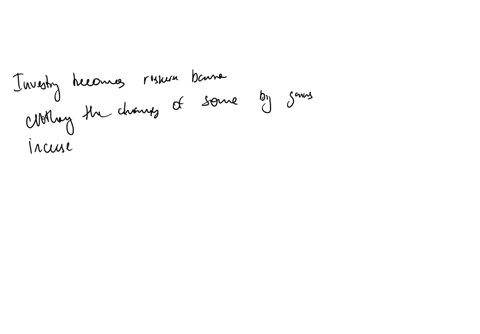 Investing becomes riskier because
the chances of some big gains
increase